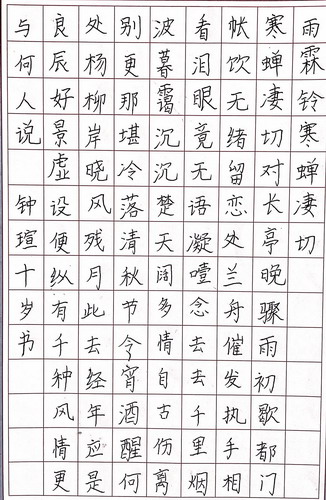 雨霖铃寒蝉凄切
寒蝉凄切对长亭晚骤雨初歇都门
帐饮无绪留恋处兰舟催发执手相
看泪眼竟无语凝噎念去去千里烟
波暮霭沉沉楚天阔多情自古伤离
别更那堪冷落清秋节今宵酒醒何
处杨柳岸晓风残月此去经年应是
良辰好景虚设便纵有千种风情更
与何人说 钟瑄十岁书